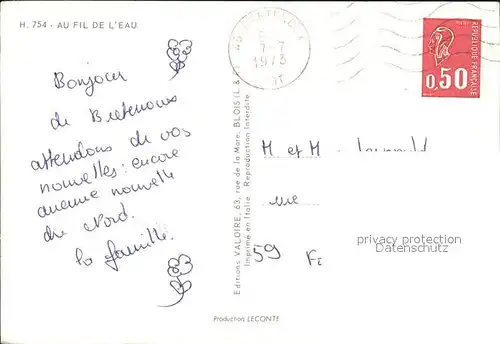 H. 754 - AU FIL DE L'EAU
Bonjour
de Bretenoux
attendons de vos
nouvelles : encore
aucune nouvelle
du Nord.
la famille.
46 BRETENOUX
7-7
1973
LOT
RÉPUBLIQUE FRANÇAISE
0,50
Editions VALOIRE, 63, rue de la Mare, BLOIS (L. & C.)
Imprimé en Italie. Reproduction Interdite
M et M
rue
59 Fe
privacy protection
Datenschutz
Production LECONTE